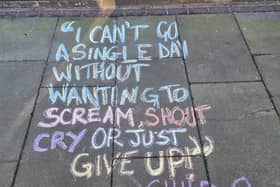 "I CAN'T GO
A SINGLE DAY
WITHOUT
WANTING TO
SCREAM, SHOUT
CRY OR JUST
GIVE UP!"